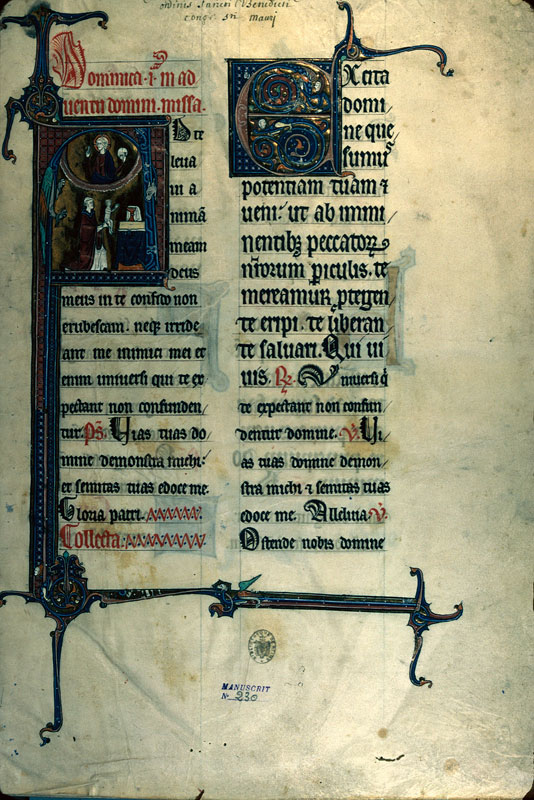 ordinis Sancti Benedicti
congr. sti mauri
Dominica ·i· in ad
uentu domini. missa.
AD te
leuа
ui a
nimā
meam
deus
meus in te confido non
erubescam. neqꝫ irride
ant me inimici mei et
enim uniuersi qui te ex/
pectant non confunden/
tur. ps̄. Uias tuas do/
mine demonstra michi:
et semitas tuas edoce me.
Gloria patri.
Collecta.
EXcita
domi
ne que
sumꝰ
potentiam tuam ⁊
ueni: ut ab immi/
nentibꝫ peccatoꝝ
nr̄orum ꝑiculis. te
mereamur ꝓtegen/
te eripi. te liberan
te saluari. Qui ui
uis. R̄. Vniuersi q̇
te expectant non confun/
dentur domine. V̄. Ui/
as tuas domine demon/
stra michi ⁊ semitas tuas
edoce me. Alleluia V̄.
Ostende nobis domine
MANUSCRIT
N° 230